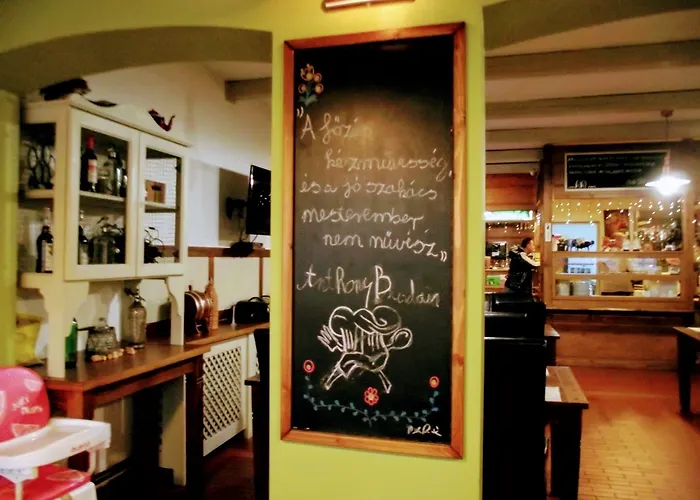 „A főzés
kézművesség,
és a jó szakács
mesterember
nem művész”
Anthony Bourdain